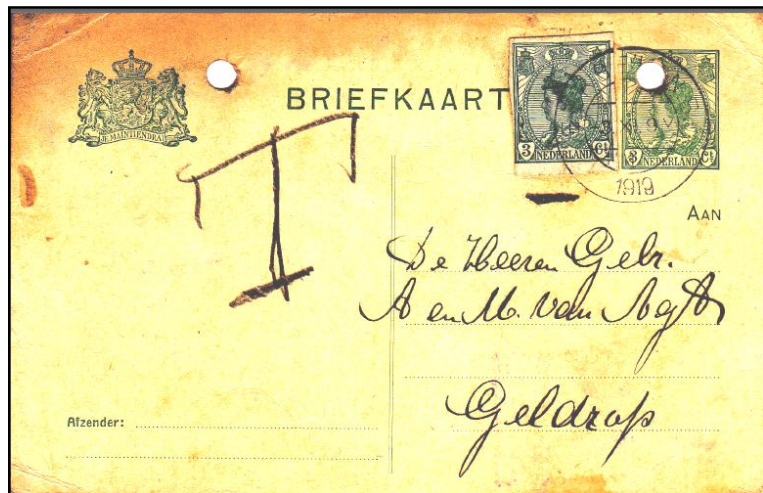 JE MAINTIENDRAI
BRIEFKAART
3 NEDERLAND Ct
3 NEDERLAND Ct
1919
T
AAN
De Heeren Gebr.
A en M. van Agt
Geldrop
Afzender: